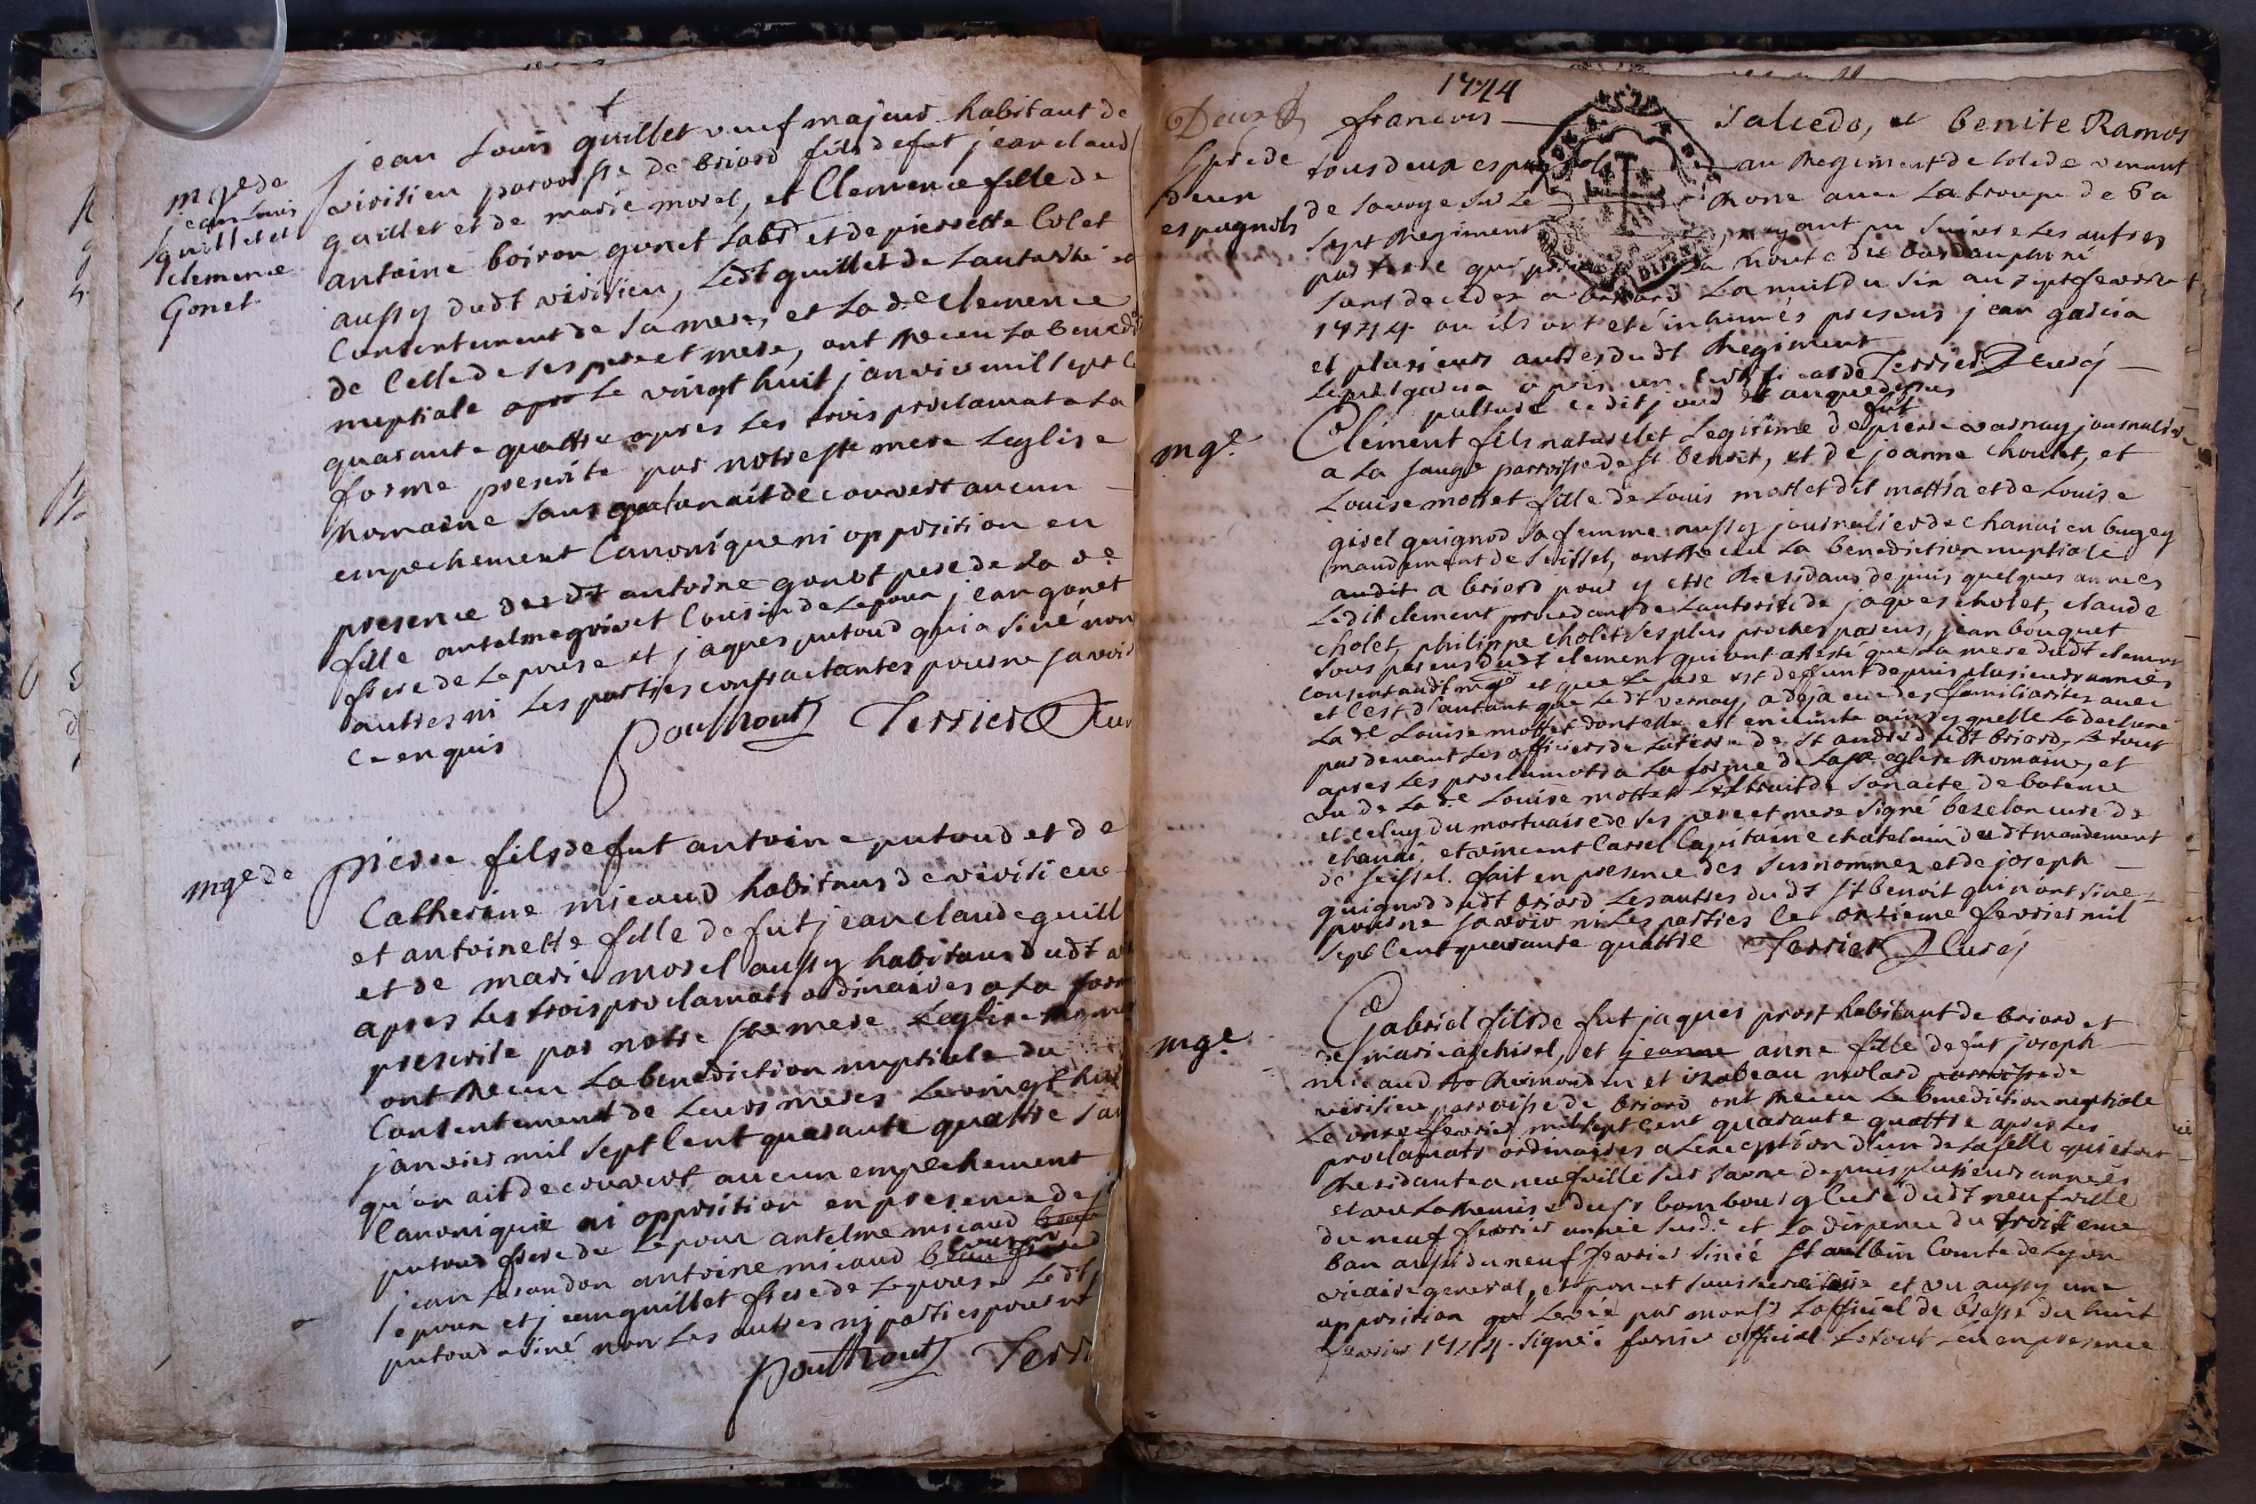 mge de
jean Louis
guillet et
clemence
Gonet
jean Louis guillet veuf majeur habitant de
virisieu parroisse de briord fils de fut jean claud
guillet et de marie morel, et Clemence fille de
antoine boiron gonet labr et de pierrette Colet
aussy dudt virisieu, ledt guillet de Lautorité et
Consentement de sa mere, et La de clemence
de Celle de ses pere et mere, ont Receu La benedi
nuptiale apr Le vingt huit janvier mil sept C
quarante quattre apres Les trois proclamat a La
forme prescrite par notre ste mere Leglise
Romaine sans quelon ait decouvert aucun
empechement Canonique ni opposition en
presence dudt antoine gonet pere de La de
fille antelme Cousin de Lepoux jean gonet
frere de Lepouse et jaques putoud qui a siné non
autres ni Les parties contractantes pour ne savoir
Ce enquis Terrier Cur
mge de
pierre fils de fut antoine putoud et de
Catherine micaud habitans de virisieu
et antoinette fille de fut jean claude guill
et de marie morel aussy habitans dudt
apres Les trois proclamats ordinaires a La form
prescrite par notre ste mere Leglise
ont Receu La benediction nuptiale du
Consentement de Leurs meres Le vingt hui
janvier mil sept Cent quarante quattre san
qu'on ait decouvert aucun empechement
Canonique ni opposition en presence de
putoud frere de Lepoux antelme micaud
jean antoine micaud
Lepoux et jean guillet frere de Lepouse Ledt
putoud a siné non Les autres ni parties pour ne
Terri
1744
Deux
espagnols
francois Salcedo, et benite Ramos
tous deux espagnols au Regiment de tolede venant
de savoye sur Le Rone avec La troupe de
sept Regiment, nayant pu suivre Les autres
par terre qui La Route du bas dauphiné
sont decedez a briord La nuit du six au sept fevrier
1744 ou ils ont eté inhumés presens jean garcia
et plusieurs autres dudt Regiment
Lequel garcia a pris un certificat de Terrier Curé
pulture ce dit jour et an que dessus
mge
Clément fils naturel et Legitime de fut pierre varnay journalier
a La sauge parroisse de st benoit, et de joanne Choulet, et
Louise mottet fille de Louis mottet dit mattra et de Louise
gisel guignod sa femme aussy journalier de chanai en bugey
mandement de seissel, ont Receu La benediction nuptiale
audit a briord pour y etre Residans depuis quelques années
Ledit clement procedant de Lautorité de jaques cholet, claude
cholet, philippe cholet ses plus proches parens, jean bouquet
tous parens dudt clement qui ont attesté que La mere dudt clement
consent audt mge et que Le pere est defunt depuis plusieurs années
et C'est d'autant que Le dt vernay, a deja eu des familiarites avec
La de Louise mottet dont elle est enceinte ainsy quelle La declaré
par devant Les officiers de La terre de st andré dudt briord, Le tout
apres Les proclamats a La forme de La ste eglise Romaine, et
vu de La de Louise mottet Lextrait de son acte de bateme
et celuy du mortuaire de ses pere et mere signé bezelon curé de
chanai, et vincent Cassel Capitaine chatelain dudt mandement
de seissel. fait en presence des susnommez et de joseph
guignod dudt briord Les autres dudt st benoit qui n'ont siné
pour ne savoir ni Les parties Ce onzieme fevrier mil
sept Cent quarante quattre Terrier Curé
mge
Gabriel fils de fut jaques prost habitant de briord et
de marie archirel, et jeanne anne fille de fut joseph
micaud et izabeau molard parroisse de
virisieu parroisse de briord ont Receu La benediction nuptiale
Le onze fevrier mil sept cent quarante quattre apres Les
proclamats ordinaires a Lexception d'un de La fille qui etoit
Residante a neufville sur saone depuis plusieurs années
et vu La Remise du sr bombourg Curé dudt neufville
du neuf fevrier année susde et La dispence du troisieme
ban aussi du neuf fevrier siné st aulbin Comte de Lyon
vicaire general, et ponet soussecretaire et vu aussy une
opposition Levée par monsr Lofficial de du huit
fevrier 1744. Signé official Le tout Lu en presence